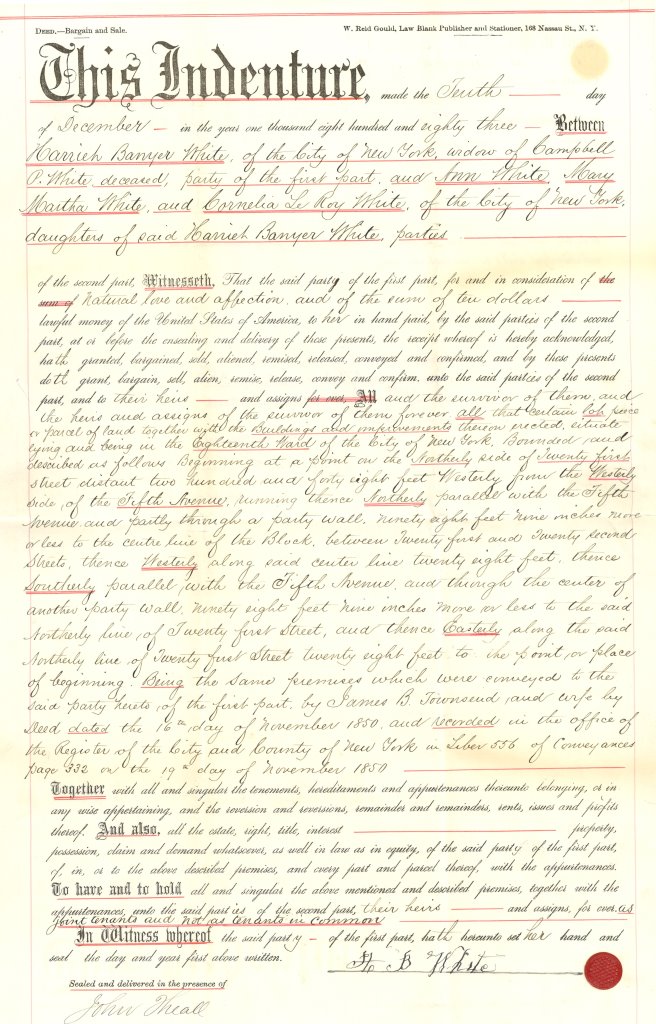 DEED.—Bargain and Sale. W. Reid Gould, Law Blank Publisher and Stationer, 168 Nassau St., N. Y.
This Indenture, made the Tenth day
of December in the year one thousand eight hundred and eighty three Between
Harriet Banyer White, of the City of New York, widow of Campbell
P. White deceased, party of the first part, and Ann White, Mary
Martha White, and Cornelia Le Roy White, of the City of New York,
daughters of said Harriet Banyer White, parties
of the second part, Witnesseth, That the said party of the first part, for and in consideration of the
sum of Natural love and affection, and of the sum of ten dollars
lawful money of the United States of America, to her in hand paid, by the said parties of the second
part, at or before the ensealing and delivery of these presents, the receipt whereof is hereby acknowledged,
hath granted, bargained, sold, aliened, remised, released, conveyed and confirmed, and by these presents
doth grant, bargain, sell, alien, remise, release, convey and confirm, unto the said parties of the second
part, and to their heirs and assigns for ever, All and the survivor of them, and
the heirs and assigns of the survivor of them forever all that certain lot, piece
or parcel of land together with the Buildings and improvements thereon erected, situate
lying and being in the Eighteenth Ward of the City of New York, Bounded and
described as follows Beginning at a point on the Northerly side of Twenty first
street distant two hundred and forty eight feet Westerly from the Westerly
side, of the Fifth Avenue, running thence Northerly parallel with the Fifth
Avenue and partly through a party wall, ninety eight feet nine inches more
or less to the centre line of the Block, between Twenty first and Twenty second
Streets, thence Westerly along said center line twenty eight feet, thence
Southerly parallel with the Fifth Avenue, and through the center of
another party wall, ninety eight feet nine inches more or less to the said
Northerly line, of Twenty first Street, and thence Easterly along the said
Northerly line of Twenty first Street twenty eight feet to the point or place
of beginning. Being the same premises which were conveyed to the
said party hereto, of the first part, by James B. Townsend and wife by
Deed dated the 16th day of November 1850, and recorded in the office of
the Register of the City and County of New York in Liber 556 of Conveyances
page 332 on the 19th day of November 1850
Together with all and singular the tenements, hereditaments and appurtenances thereunto belonging, or in
any wise appertaining, and the reversion and reversions, remainder and remainders, rents, issues and profits
thereof. And also, all the estate, right, title, interest property,
possession, claim and demand whatsoever, as well in law as in equity, of the said party of the first part,
of, in, or to the above described premises, and every part and parcel thereof, with the appurtenances.
To have and to hold all and singular the above mentioned and described premises, together with the
appurtenances, unto the said parties of the second part, their heirs and assigns, for ever, as
joint tenants and not as tenants in common
In Witness whereof the said party of the first part, hath hereunto set her hand and
seal the day and year first above written.
H B White
Sealed and delivered in the presence of
John Theall